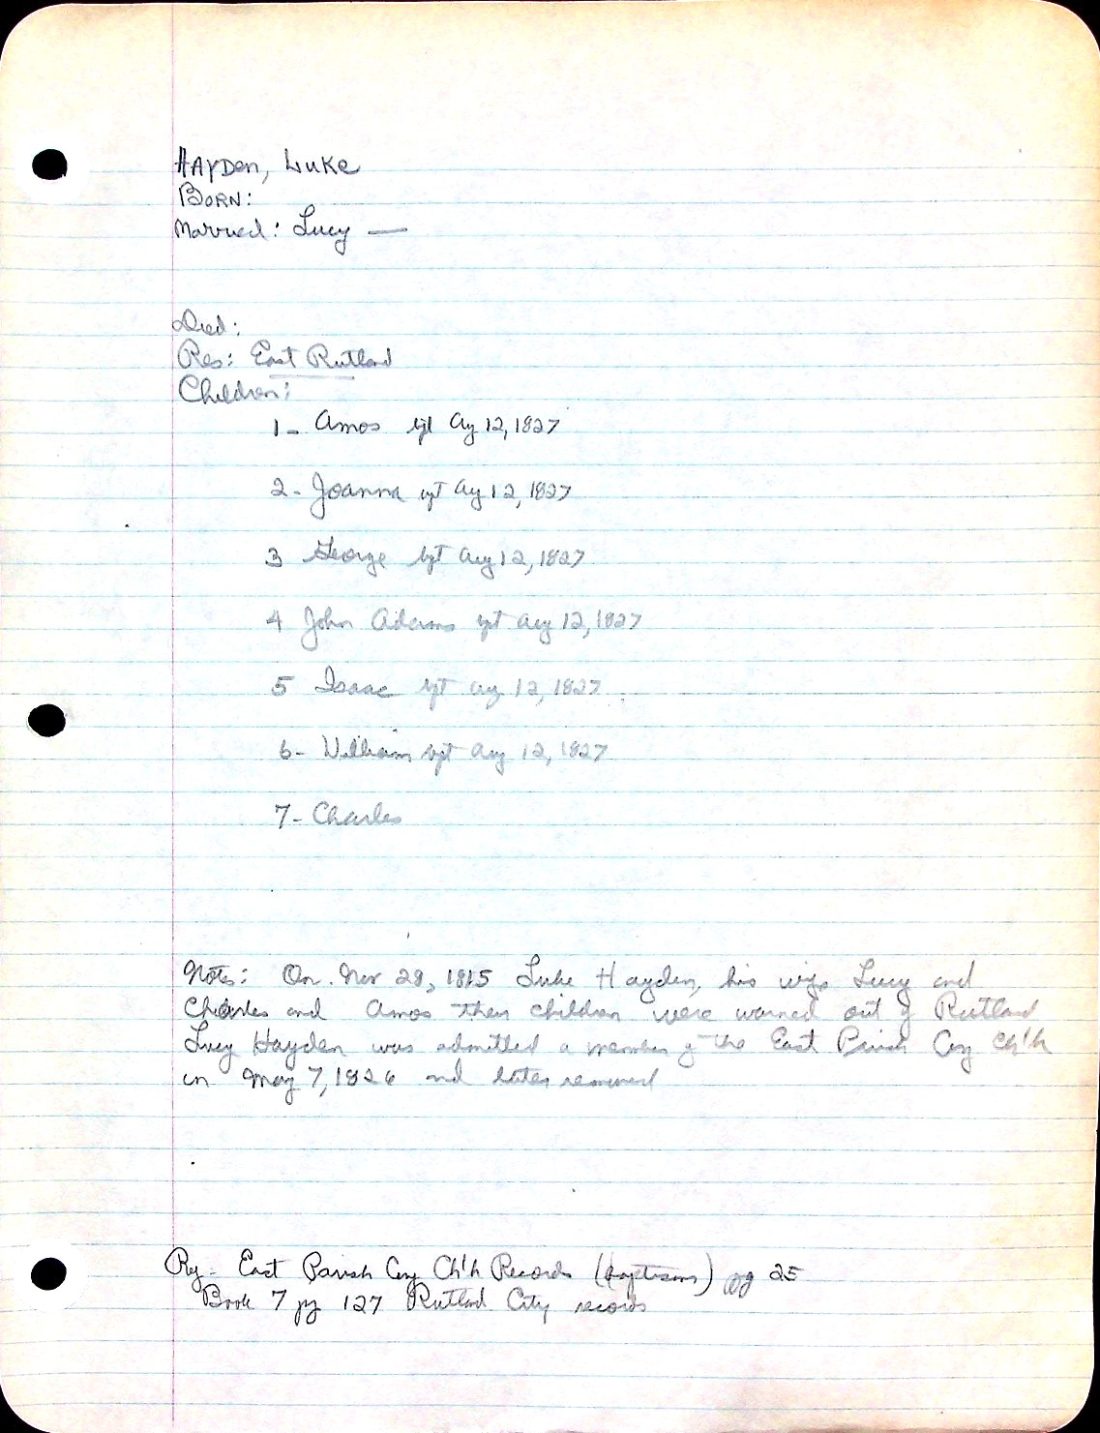 HAYDen, Luke
BORN:
Married: Lucy —
Died:
Res: East Rutland
Children:
1- Amos bpt Aug 12, 1827
2- Joanna bpt Aug 12, 1827
3 George bpt Aug 12, 1827
4 John Adams bpt Aug 12, 1827
5 Isaac bpt Aug 12, 1827
6- William bpt Aug 12, 1827
7- Charles
Notes: On Nov 28, 1815 Luke Hayden, his wife Lucy and
Charles and Amos their children were warned out of Rutland
Lucy Hayden was admitted a member of the East Parish Cong Ch'h
in May 7, 1826 and later removed
East Parish Cong Ch'h Records (baptisms) pg 25
Book 7 pg 127 Rutland City records